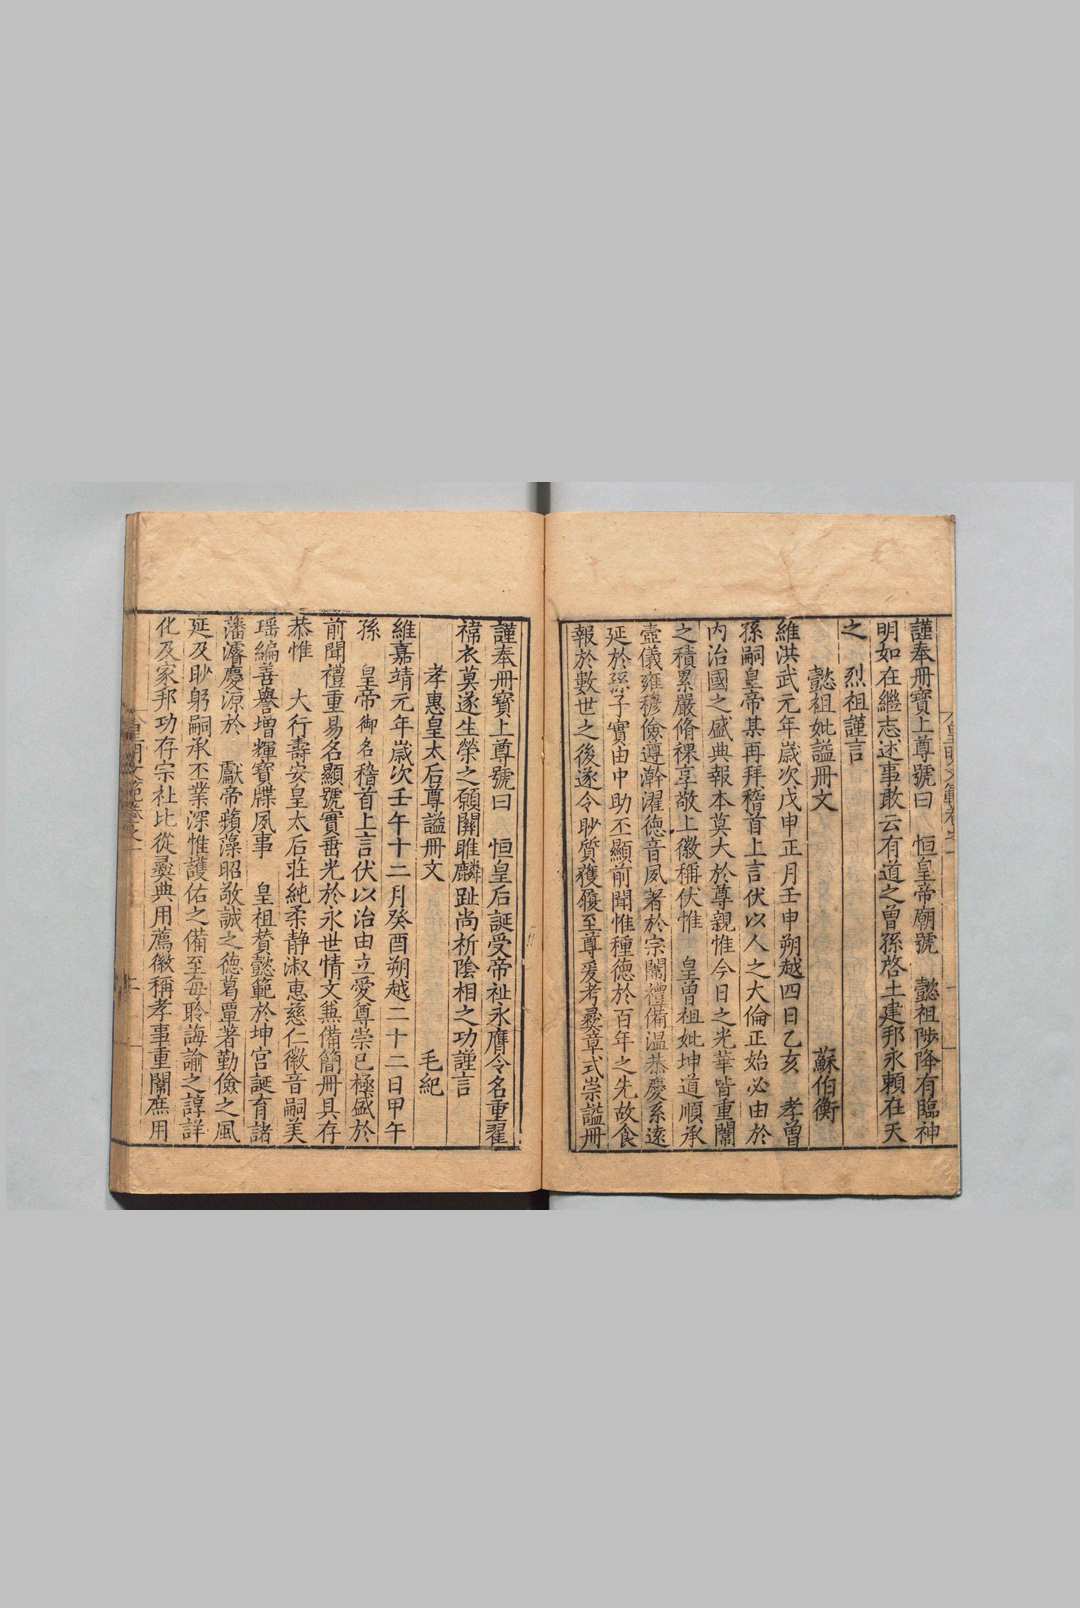 謹奉冊寶上尊號曰　恒皇帝廟號　懿祖陟降有臨神
明如在繼志述事敢云有道之曾孫啓土建邦永賴在天
之　烈祖謹言
懿祖妣謚冊文　蘇伯衡
維洪武元年歲次戊申正月壬申朔越四日乙亥　孝曾
孫嗣皇帝某再拜稽首上言伏以人之大倫正始必由於
內治國之盛典報本莫大於尊親惟今日之光華皆重闈
之積累嚴脩祼享敬上徽稱伏惟　皇曾祖妣坤道順承
壼儀雍穆儉遵澣濯德音夙著於宗閫禮備温恭慶系遠
延於孫子實由中助丕顯前聞惟種德於百年之先故食
報於數世之後遂令眇質獲履至尊爰考彞章式崇謚冊
謹奉冊寶上尊號曰　恒皇后誕受帝祉永膺令名重翟
褘衣莫遂生榮之願關雎麟趾尚祈陰相之功謹言
孝惠皇太后尊謚冊文　毛紀
維嘉靖元年歲次壬午十二月癸酉朔越二十二日甲午
孫　皇帝御名稽首上言伏以治由立愛尊崇已極盛於
前聞禮重易名顯號實垂光於永世情文兼備簡冊具存
恭惟　大行壽安皇太后莊純柔静淑惠慈仁徽音嗣美
瑶編善譽增輝寶牒夙事　皇祖賛懿範於坤宫誕育諸
藩濬慶源於　獻帝蘋藻昭敬誠之德葛覃著勤儉之風
延及眇躬嗣承丕業深惟護佑之備至每聆誨諭之諄詳
化及家邦功存宗社比從彞典用薦徽稱孝事重闈庶用